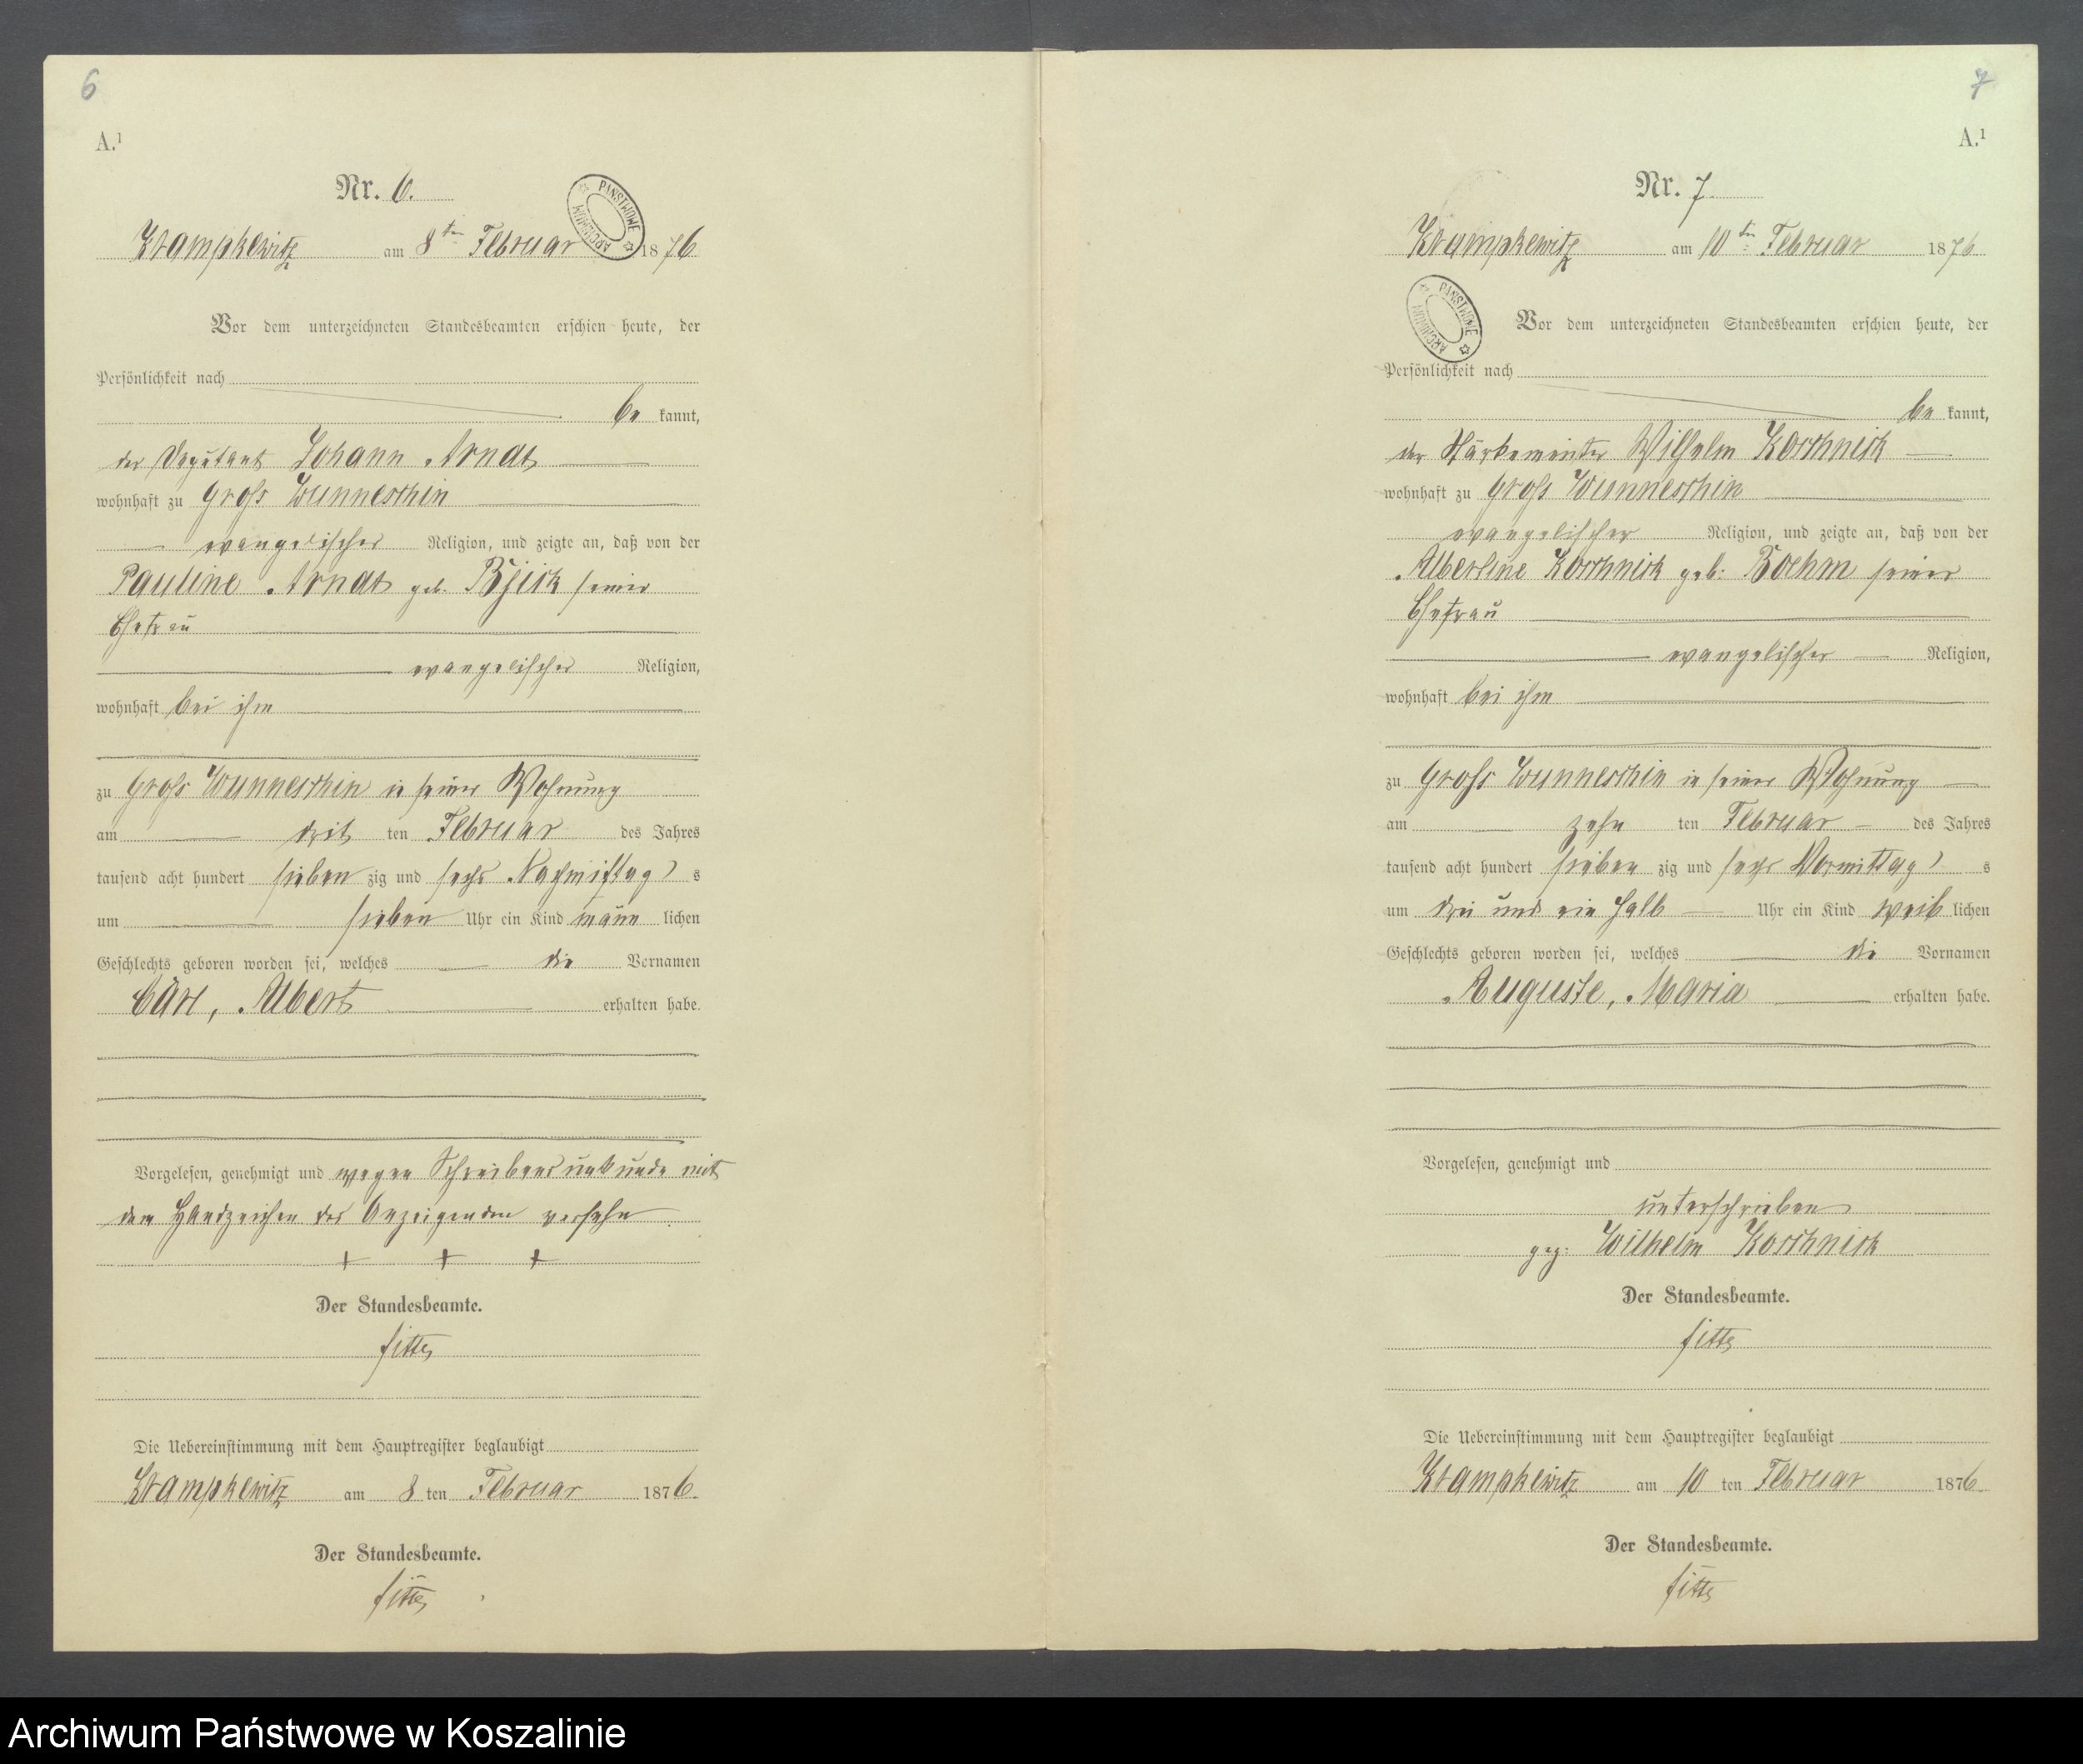 6
A.¹
Nr. 6.
PANSTWOWE ARCHIWUM
Krampkewitz am 8ten Februar 1876
Vor dem unterzeichneten Standesbeamten erschien heute, der
Persönlichkeit nach
be kannt,
der Deputant Johann Arndt
wohnhaft zu Gross Wunneschin
evangelischer Religion, und zeigte an, daß von der
Pauline Arndt geb. seiner
Ehefrau
evangelischer Religion,
wohnhaft bei ihm
zu Gross Wunneschin in seiner Wohnung
am drit ten Februar des Jahres
tausend acht hundert sieben zig und sechs Nachmittag s
um sieben Uhr ein Kind männ lichen
Geschlechts geboren worden sei, welches die Vornamen
Carl, Albert erhalten habe.
Vorgelesen, genehmigt und wegen Schreibensunkunde mit
dem Handzeichen des Anzeigenden versehn
+ + +
Der Standesbeamte.
Die Uebereinstimmung mit dem Hauptregister beglaubigt
Krampkewitz am 8 ten Februar 1876.
Der Standesbeamte.
7
A.¹
Nr. 7.
Krampkewitz am 10ten Februar 1876
PANSTWOWE ARCHIWUM
Vor dem unterzeichneten Standesbeamten erschien heute, der
Persönlichkeit nach
be kannt,
der Wilhelm Koschnick
wohnhaft zu Gross Wunneschin
evangelischer Religion, und zeigte an, daß von der
Albertine Koschnick geb. Boehm seiner
Ehefrau
evangelischer Religion,
wohnhaft bei ihm
zu Gross Wunneschin in seiner Wohnung
am zehn ten Februar des Jahres
tausend acht hundert sieben zig und sechs Vormittag s
um drei und ein halb Uhr ein Kind weib lichen
Geschlechts geboren worden sei, welches die Vornamen
Auguste, Maria erhalten habe.
Vorgelesen, genehmigt und
unterschrieben
gez. Wilhelm Koschnick
Der Standesbeamte.
Die Uebereinstimmung mit dem Hauptregister beglaubigt
Krampkewitz am 10 ten Februar 1876.
Der Standesbeamte.
Archiwum Państwowe w Koszalinie